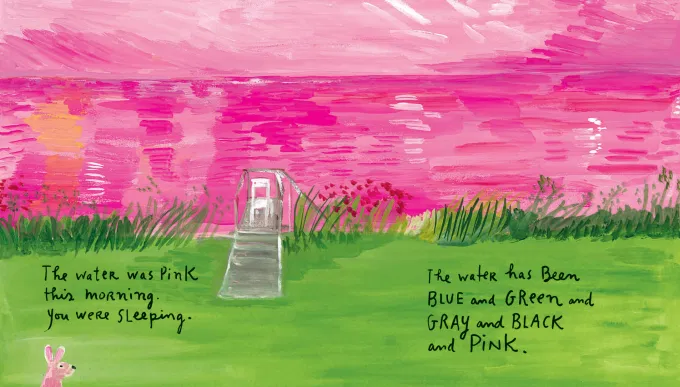 The water was Pink
this morning.
You were SLeeping.
The water has Been
BLUE and GReen and
GRAY and BLACK
and PiNK.